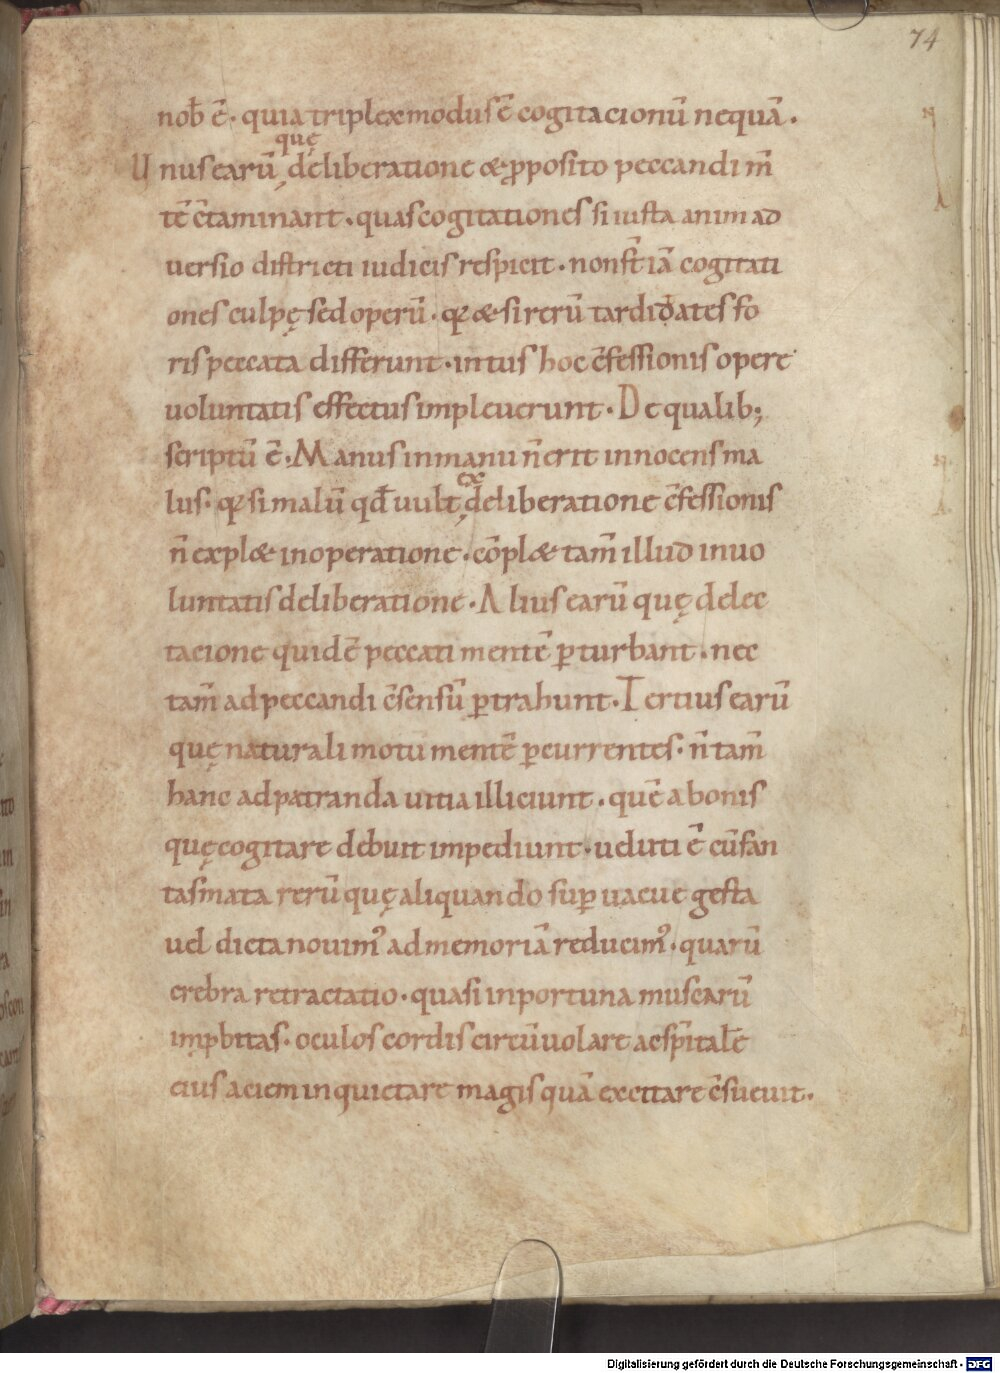 74
nob̄ ē· quia triplex modus ē cogitacionū nequā·
quę
Unus earū deliberatione & ꝓposito peccandi m̄
tē c̄taminant· quas cogitationes si iusta animad
uersio districti iudicis respicit· non st̄ iā cogitati
ones culpę sed operū· qꝛ & si rerū tarditates fo
ris peccata differunt· intus hoc c̄fessionis opere
uoluntatis effectus impleuerunt· De qualib;
scriptū ē· Manus in manu n̄ erit innocens ma
ex
lus· qꝛ si malū qd̄ uult deliberatione c̄fessionis
n̄ expl& in operatione· cōpl& tam̄ illud in uo
luntatis deliberatione· Alius earū quę delec
tacione quidē peccati mentē ꝑturbant· nec
tam̄ ad peccandi c̄sensū ꝑtrahunt· Tertius earū
quę naturali motu mentē ꝑcurrentes· n̄ tam̄
hanc ad patranda uitia illiciunt· quē a bonis
quę cogitare debuit impediunt· ueluti ē cū fan
tasmata rerū quę aliquando suꝑuacue gesta
uel dicta nouimꝰ ad memoriā reducimꝰ· quarū
crebra retractatio· quasi inportuna muscarū
impbitas· oculos cordis circūuolare ac sp̄italē
eius aciem inquietare magis quā excitare c̄sueuit·
Digitalisierung gefördert durch die Deutsche Forschungsgemeinschaft · DFG